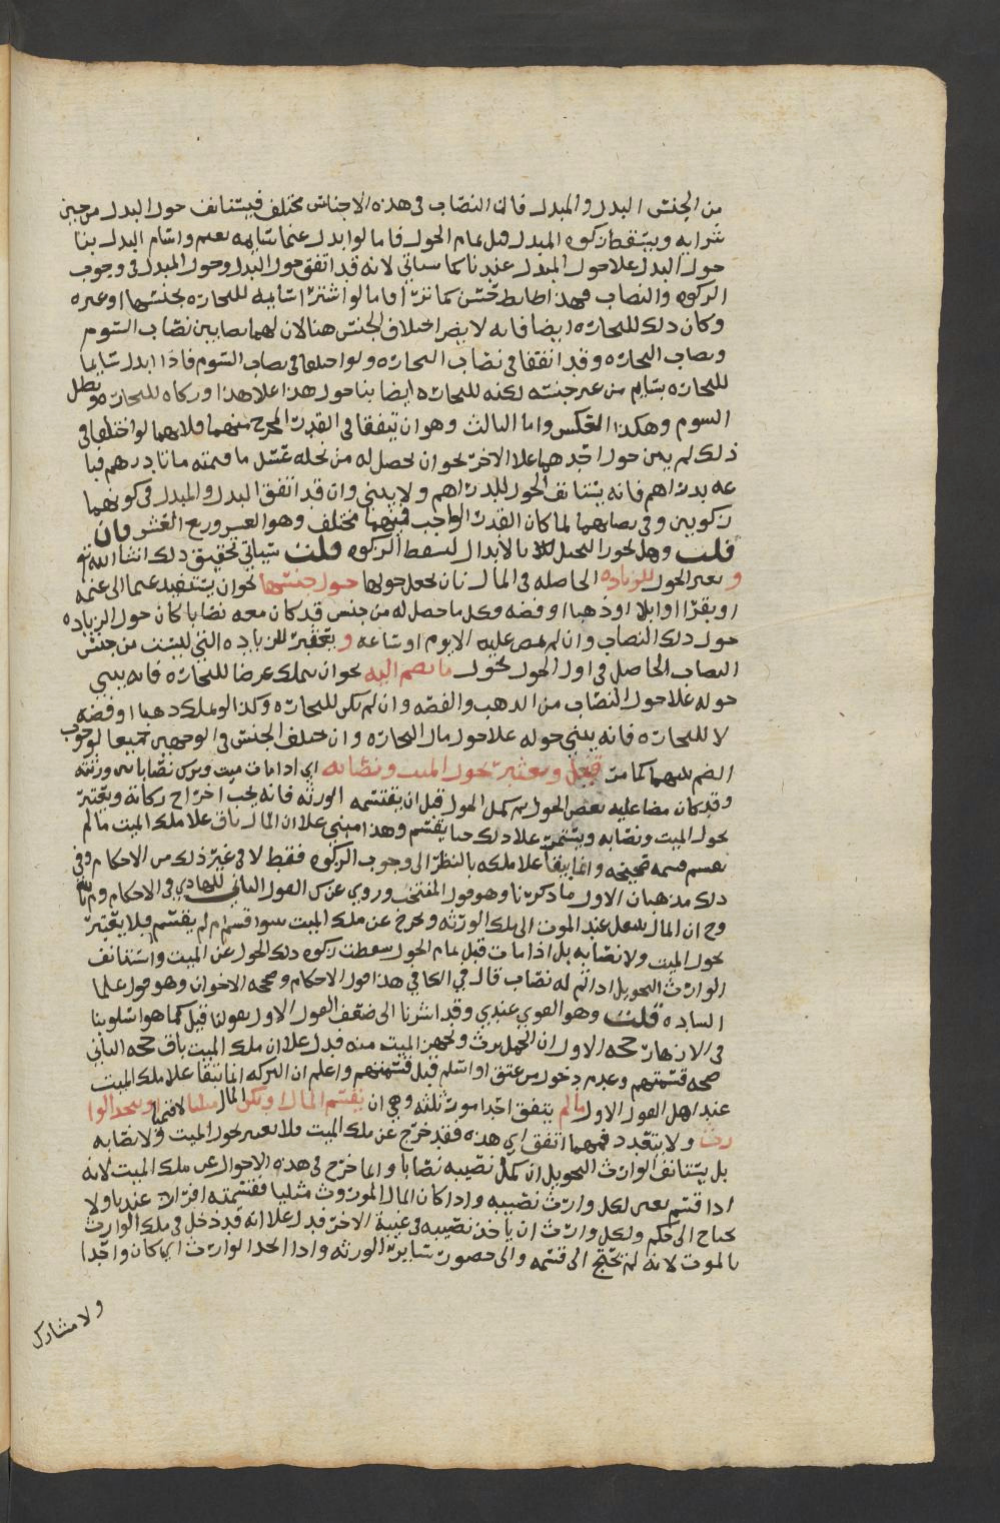 من الجنس البدل والمبدل فان النصاب في هذه الاجناس مختلف فيستانف حول البدل من حين
شرايه ويسقط زكوه المبدل قبل تمام الحول فاما لو ابدل غنما سايمه بغنم واتام البدل بنا
حول البدل علا حول المبدل عندنا كما سياتي لانه قد اتفق حول البدل وحول المبدل في وجوب
الزكوه والنصاب فهذا ضابط حسن كما ترا واما لو اشترا سايمه للتجاره بجنسها او غيره
وكان ذلك للتجاره ايضا فانه لا يضر اختلاف الجنس هنا لان لهما نصابين نصاب السوم
ونصاب التجاره وقد اتفقا في نصاب التجاره ولو اختلفا في نصاب السوم فاذا ابدل سايما
للتجاره بسايم من غير جنسه لكنه للتجاره ايضا بنا حول هذا علا هذا وزكاه للتجاره وبطل
السوم وهكذا العكس واما الثالث وهو ان يتفقا في القدر المخرج منهما فلانهما لو اختلفا في
ذلك لم يبن حول احدهما علا الاخر نحو ان يحصل له من نحله عسل ما قيمته مائتا درهم فبا
عه بدراهم فانه يستانف الحول للدراهم ولا يبني وان قد اتفق البدل والمبدل في كونهما
زكويين وفي نصابهما لما كان القدر الواجب فيهما مختلف وهو العشر وربع العشر فان
قلت وهل يجوز التحيل بالابدال لتسقط الزكوه قلت سياتي تحقيق ذلك انشا الله تع
و يعتبر الحول للزياده الحاصله في المال بان يجعل حولها حول جنسها نحو ان يستفيد غنما الى غنمه
او بقرا او ابلا او ذهبا او فضه وكل ما حصل له من جنس قد كان معه نصابا كان حول الزياده
حول ذلك النصاب وان لم يمض عليه الا يوم او ساعه و يعتبر للزياده التي ليست من جنس
النصاب الحاصل في اول الحول بحول ما تضم اليه نحو ان يملك عرضا للتجاره فانه يبني
حوله علا حول النصاب من الذهب والفضه وان لم يكن للتجاره وكذا لو ملك ذهبا او فضه
لا للتجاره فانه يبني حوله علا حول مال التجاره وان اختلف الجنس في الوجهين جميعا لوجوب
الضم بينهما كما مر قيل ويعتبر بحول الميت ونصابه اي اذا مات ميت وترك نصابا بين ورثته
وقد كان مضا عليه بعض الحول ثم كمل الحول قبل ان يقتسمه الورثه فانه يجب اخراج زكاته ويعتبر
بحول الميت ونصابه ويستمر علا ذلك حتا يقتسم وهذا مبني علا ان المال باق علا ملك الميت ما لم
يقسم قسمه صحيحه وانما يبقا علا ملكه بالنظر الى وجوب الزكوه فقط لا في غير ذلك من الاحكام وفي
ذلك مذهبان الاول ما ذكرنا وهو قول المنتخب وروي عن ش القول الثاني للهادي في الاحكام و
و ح ان المال ينتقل عند الموت الى ملك الورثه ويخرج عن ملك الميت سوا قسم ام لم يقتسم فلا يعتبر
بحول الميت ولا نصابه بل اذا مات قبل تمام الحول سقطت زكوه ذلك الحول عن الميت واستانف
الوارث التحويل اذا تم له نصاب قال في الكافي هذا قول الاحكام وصححه الاخوان وهو قول علما
الساده قلت وهو القوي عندي وقد اشرنا الى ضعف القول الاول بقولنا قيل كما هو اسلوبنا
في الازهار حجه الاول ان الحمل يرث ويجهز الميت منه فدل علا ان ملك الميت باق حجه الثاني
صحه قسمتهم وعدم دخول من عتق او اسلم قبل قسمتهم واعلم ان التركه انما تبقا علا ملك الميت
عند اهل القول الاول ما لم يتفق احد امور ثلثه وهي ان يقتسم المال او يكن المال مثليا لا قيميا او يتحد الوا
رث ولا يتعدد فمهما اتفق اي هذه فقد خرج عن ملك الميت فلا يعتبر بحول الميت ولا نصابه
بل يستانف الوارث التحويل ان كمل نصيبه نصابا وانما خرج في هذه الاحوال عن ملك الميت لانه
اذا قسم تعين لكل وارث نصيبه واذا كان المال الموروث مثليا فقسمته افراز عندنا ولا
يحتاج الى حكم ولكل وارث ان ياخذ نصيبه في غيبة الاخر فدل علا انه قد دخل في ملك الوارث
بالموت لانه لم يحتج الى قسمه والى حضور ساير الورثه واذا اتحد الوارث اي كان واحدا
ولا مشارك